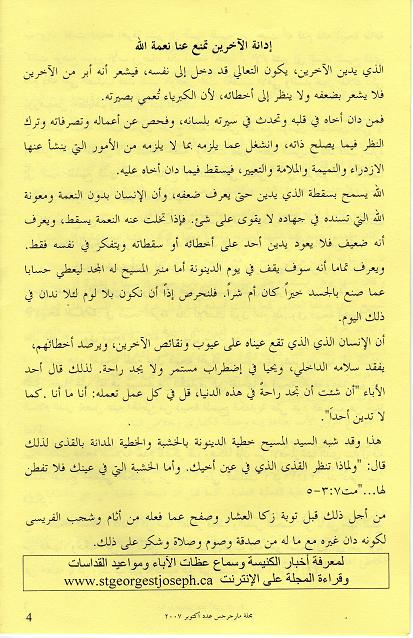 إدانة الآخرين تمنع عنا نعمة الله
الذي يدين الآخرين، يكون التعالي قد دخل إلى نفسه، فيشعر أنه أبر من الآخرين
فلا يشعر بضعفه ولا ينظر إلى أخطائه، لأن الكبرياء تُعمي بصيرته.
فمن دان أخاه في قلبه وتحدث في سيرته بلسانه، وفحص عن أعماله وتصرفاته وترك
النظر فيما يصلح ذاته، وانشغل عما يلزمه بما لا يلزمه من الأمور التي ينشأ عنها
الازدراء والنميمة والملامة والتعيير، فيسقط فيما دان أخاه عليه.
الله يسمح بسقطة الذي يدين حتى يعرف ضعفه، وأن الإنسان بدون النعمة ومعونة
الله التي تسنده في جهاده لا يقوى على شئ. فإذا تخلت عنه النعمة يسقط، ويعرف
أنه ضعيف فلا يعود يدين أحد على أخطائه أو سقطاته ويتفكر في نفسه فقط.
ويعرف تماما أنه سوف يقف في يوم الدينونة أما منبر المسيح له المجد ليعطي حسابا
عما صنع بالجسد خيراً كان أم شراً. فلنحرص إذاً أن نكون بلا لوم لئلا ندان في
ذلك اليوم.
أن الإنسان الذي الذي تقع عيناه على عيوب ونقائص الآخرين، ويرصد أخطائهم،
يفقد سلامه الداخلي، ويحيا في إضطراب مستمر ولا يجد راحة. لذلك قال أحد
الأباء "أن شئت أن تجد راحةً في هذه الدنيا، قل في كل عمل تعمله: أنا ما أنا .كما
لا تدين أحداً".
هذا وقد شبه السيد المسيح خطية الدينونة بالخشبة والخطية المدانة بالقذى لذلك
قال: "ولماذا تنظر القذى الذي في عين أخيك. وأما الخشبة التي في عينك فلا تفطن
لها..."مت٧:٣-٥
من أجل ذلك قبل توبة زكا العشار وصفح عما فعله من أثام وشجب الفريسى
لكونه دان غيره مع ما له من صدقة وصوم وصلاة وشكر على ذلك.
لمعرفة أخبار الكنيسة وسماع عظات الآباء ومواعيد القداسات
وقراءة المجلة على الإنترنت www.stgeorgestjoseph.ca
مجلة مارجرجس عدد أكتوبر ٢٠٠٧
4